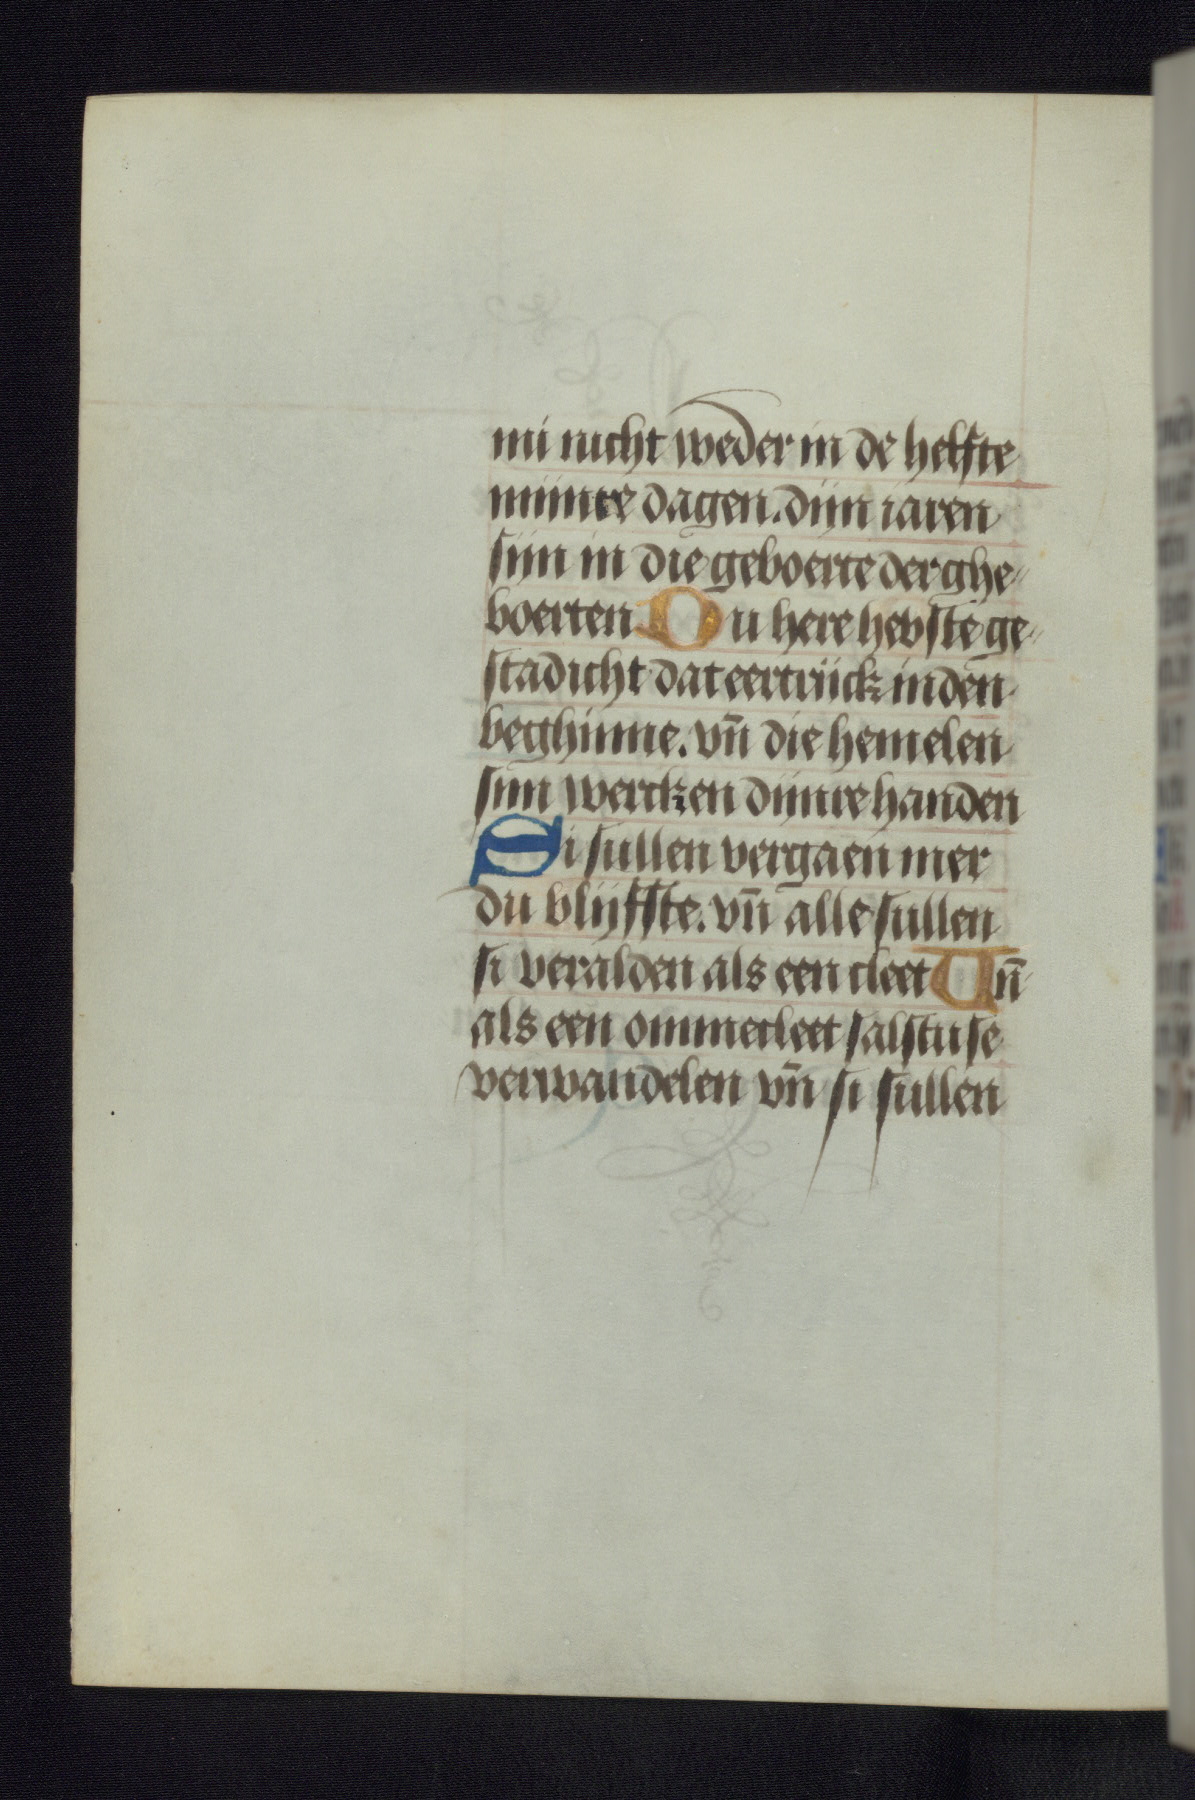 mi nicht weder in de helfte
mijnre dagen. dijn iaren
sijn in die geboerte der ghe-
boerten Du here hebste ge-
stadicht dat eertrijck in den
beghinne. vn̄ die hemelen
sijn wercken dijnre handen
Si sullen vergaen mer
du blijffste. vn̄ alle sullen
si veralden als een cleet Vn̄
als een ommecleet salstu se
verwandelen vn̄ si sullen